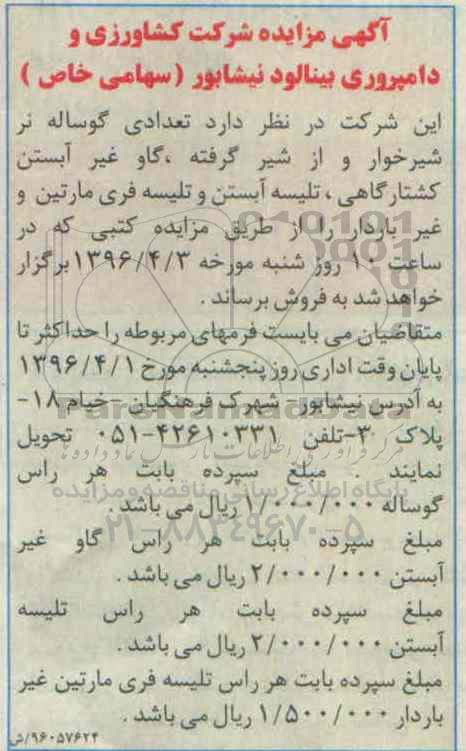 آگهی مزایده شرکت کشاورزی و
دامپروری بینالود نیشابور (سهامی خاص)
این شرکت در نظر دارد تعدادی گوساله نر
شیرخوار و از شیر گرفته ،گاو غیر آبستن
کشتارگاهی ، تلیسه آبستن و تلیسه فری مارتین و
غیر باردار را از طریق مزایده کتبی که در
ساعت ۱۰ روز شنبه مورخه ۱۳۹۶/۴/۳ برگزار
خواهد شد به فروش برساند .
متقاضیان می بایست فرمهای مربوطه را حداکثر تا
پایان وقت اداری روز پنجشنبه مورخ ۱۳۹۶/۴/۱
به آدرس نیشابور- شهرک فرهنگیان -خیام ۱۸-
پلاک ۳۰-تلفن ۴۲۶۱۰۳۳۱-۰۵۱ تحویل
نمایند . مبلغ سپرده بابت هر راس
گوساله ۱/۰۰۰/۰۰۰ ریال می باشد .
مبلغ سپرده بابت هر راس گاو غیر
آبستن ۲/۰۰۰/۰۰۰ ریال می باشد .
مبلغ سپرده بابت هر راس تلیسه
آبستن ۲/۰۰۰/۰۰۰ ریال می باشد .
مبلغ سپرده بابت هر راس تلیسه فری مارتین غیر
باردار ۱/۵۰۰/۰۰۰ ریال می باشد .
۹۶۰۵۷۶۲۴/ش
ParsNamadData
پایگاه اطلاع رسانی مناقصه و مزایده
۰۲۱-۸۸۳۴۹۶۷۰-۵